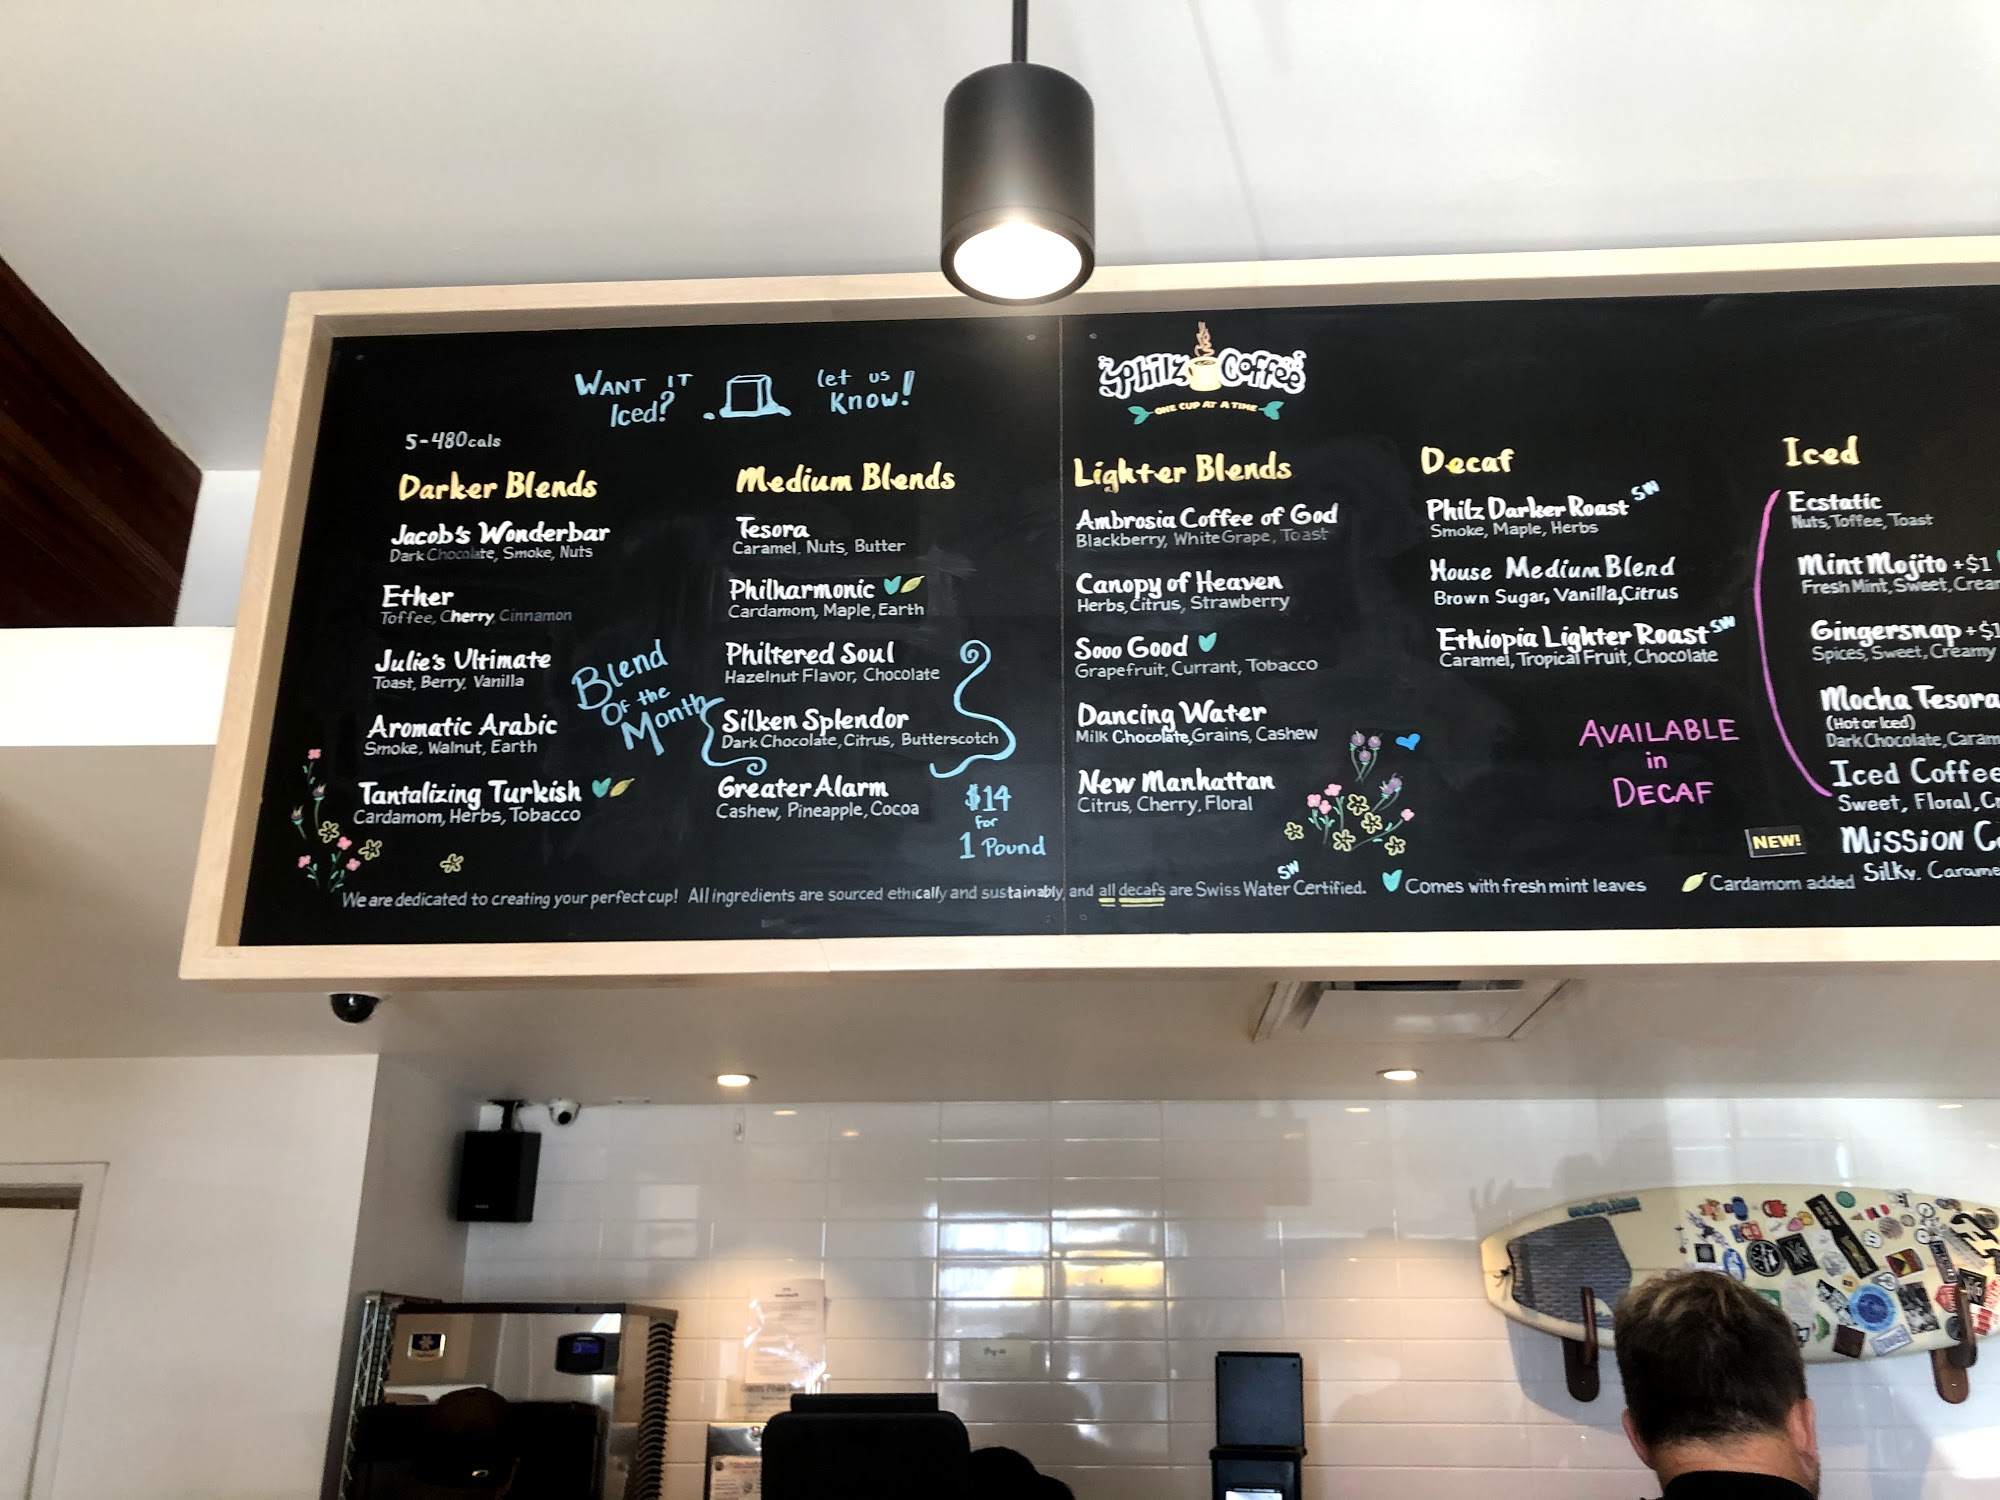 WANT IT
Iced?
let us
Know!
Philz Coffee
ONE CUP AT A TIME
5-480cals
Darker Blends
Jacob's Wonderbar
Dark Chocolate, Smoke, Nuts
Ether
Toffee, Cherry, Cinnamon
Julie's Ultimate
Toast, Berry, Vanilla
Aromatic Arabic
Smoke, Walnut, Earth
Tantalizing Turkish
Cardamom, Herbs, Tobacco
Blend
Of the
Month
Medium Blends
Tesora
Caramel, Nuts, Butter
Philharmonic
Cardamom, Maple, Earth
Philtered Soul
Hazelnut Flavor, Chocolate
Silken Splendor
Dark Chocolate, Citrus, Butterscotch
Greater Alarm
Cashew, Pineapple, Cocoa
$14
for
1 Pound
Lighter Blends
Ambrosia Coffee of God
Blackberry, White Grape, Toast
Canopy of Heaven
Herbs, Citrus, Strawberry
Sooo Good
Grapefruit, Currant, Tobacco
Dancing Water
Milk Chocolate, Grains, Cashew
New Manhattan
Citrus, Cherry, Floral
Decaf
Philz Darker Roast SW
Smoke, Maple, Herbs
House Medium Blend
Brown Sugar, Vanilla, Citrus
Ethiopia Lighter Roast SW
Caramel, Tropical Fruit, Chocolate
AVAILABLE
in
DECAF
Iced
Ecstatic
Nuts, Toffee, Toast
Mint Mojito +$1
Fresh Mint, Sweet, Crea
Gingersnap +$1
Spices, Sweet, Creamy
Mocha Tesora
(Hot or Iced)
Dark Chocolate, Caram
Iced Coffee
Sweet, Floral, C
NEW!
MISSION C
Silky, Carame
We are dedicated to creating your perfect cup! All ingredients are sourced ethically and sustainably, and all decafs are Swiss Water Certified.
SW
Comes with fresh mint leaves
Cardamom added